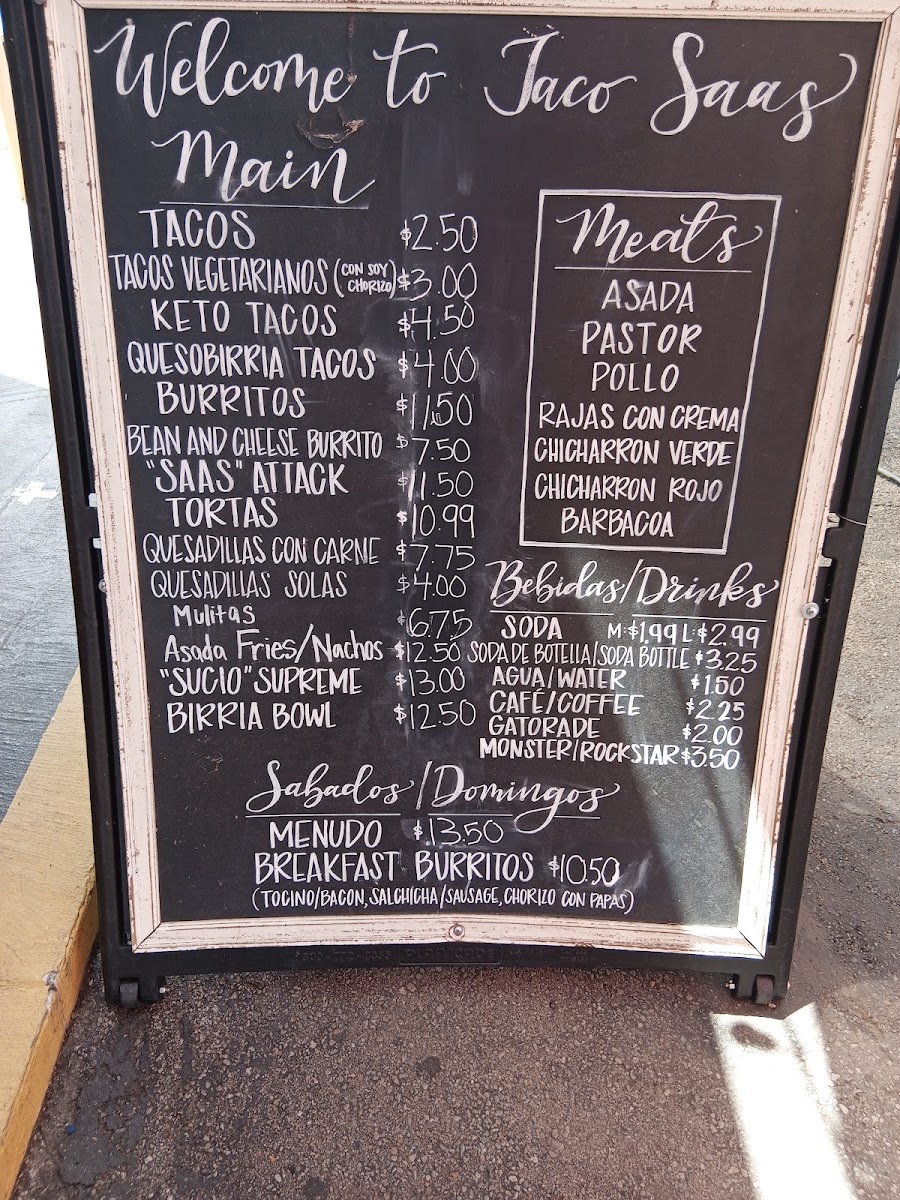 Welcome to Taco Saas
Main
TACOS $2.50
TACOS VEGETARIANOS (CON SOY CHORIZO) $3.00
KETO TACOS $4.50
QUESOBIRRIA TACOS $4.00
BURRITOS $11.50
BEAN AND CHEESE BURRITO $7.50
"SAAS" ATTACK $11.50
TORTAS $10.99
QUESADILLAS CON CARNE $7.75
QUESADILLAS SOLAS $4.00
Mulitas $6.75
Asada Fries/Nachos $12.50
"SUCIO" SUPREME $13.00
BIRRIA BOWL $12.50
Meats
ASADA
PASTOR
POLLO
RAJAS CON CREMA
CHICHARRON VERDE
CHICHARRON ROJO
BARBACOA
Bebidas/Drinks
SODA M:$1.99 L:$2.99
SODA DE BOTELLA/SODA BOTTLE $3.25
AGUA/WATER $1.50
CAFÉ/COFFEE $2.25
GATORADE $2.00
MONSTER/ROCKSTAR $3.50
Sabados/Domingos
MENUDO $13.50
BREAKFAST BURRITOS $10.50
(TOCINO/BACON, SALCHICHA/SAUSAGE, CHORIZO CON PAPAS)